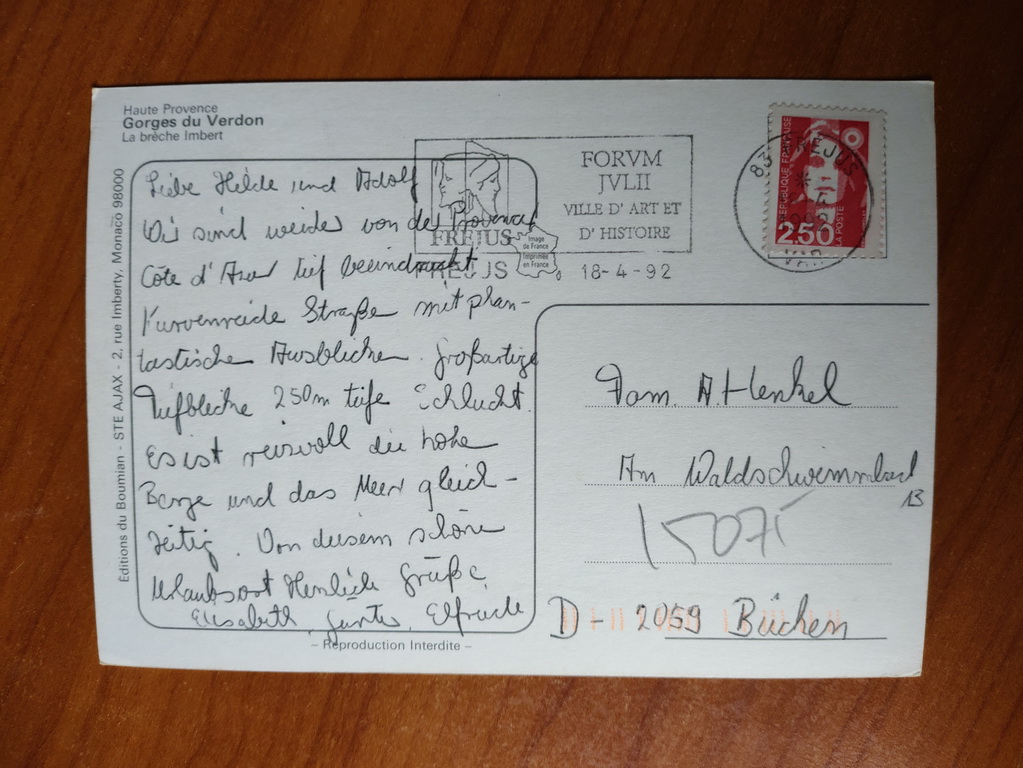 Haute Provence
Gorges du Verdon
La brèche Imbert
Editions du Boumian - STE AJAX - 2, rue Imberty, Monaco 98000
Liebe Hilde und Adolf
Wir sind wieder von der Provence
Côte d'Azur tief beeindruckt
Kurvenreiche Straße mit phan-
tastische Ausblicken. Großartige
Tiefblicke 250m tiefe Schlucht.
Es ist reizvoll die hohe
Berge und das Meer gleich-
zeitig. Von diesem schöne
Urlaubsort Herzliche Grüße
Elisabeth, Günter, Elfriede
– Reproduction Interdite –
FREJUS
FORVM
JVLII
VILLE D'ART ET
D'HISTOIRE
FREJUS 18-4-92
Image
de France
Imprimée
en France
83 FREJUS
VAR
REPUBLIQUE FRANÇAISE
LA POSTE
2,50
Fam. A. Henkel
Am Waldschwimmbad
13
15075
D - 2059 Büchen